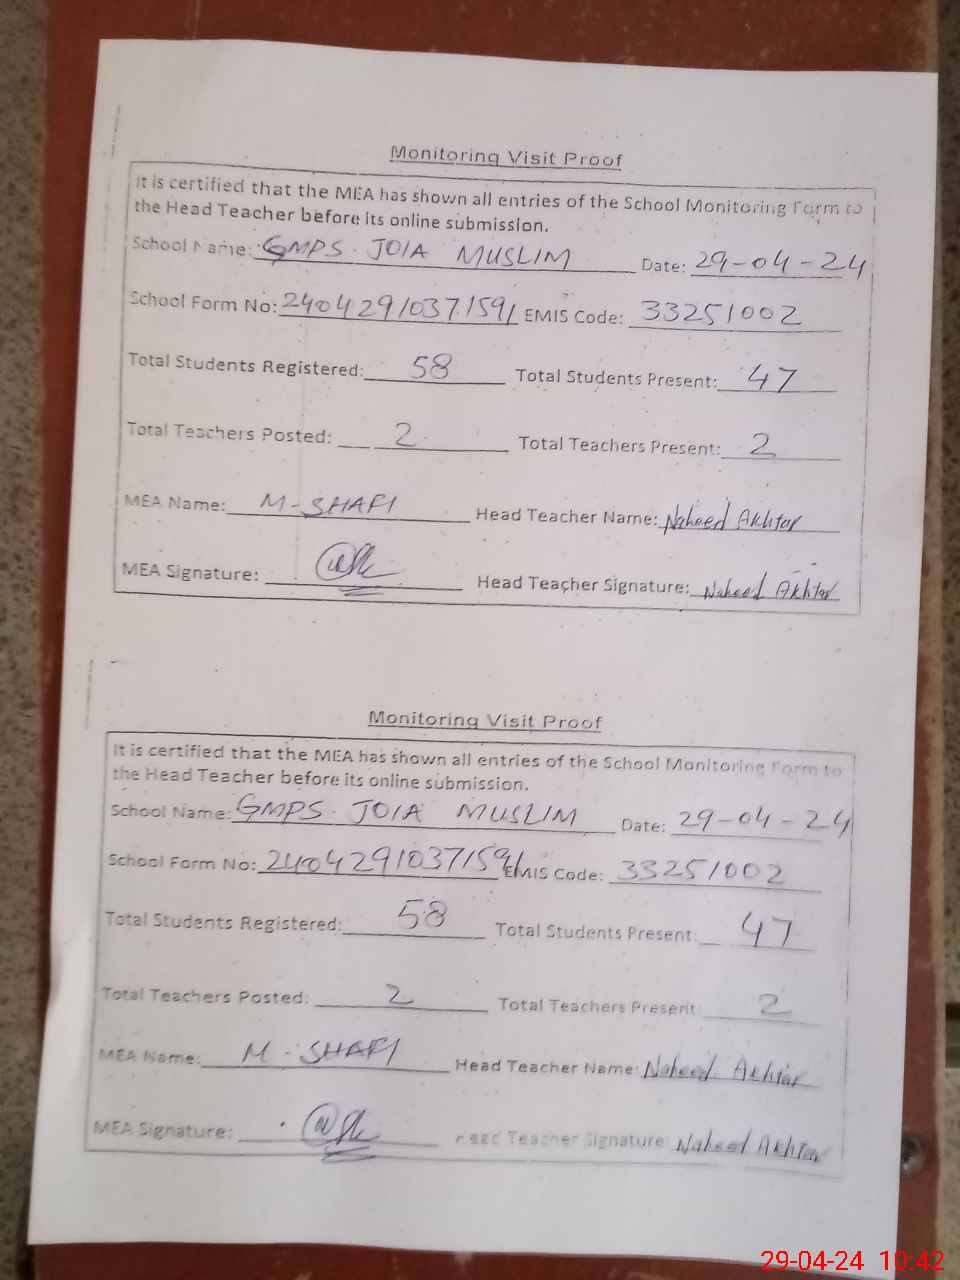 Monitoring Visit Proof
It is certified that the MEA has shown all entries of the School Monitoring Form to
the Head Teacher before its online submission.
School Name: GMPS. JOIA MUSLIM Date: 29-04-24
School Form No: 2404291037159/ EMIS Code: 33251002
Total Students Registered: 58 Total Students Present: 47
Total Teachers Posted: 2 Total Teachers Present: 2
MEA Name: M-SHAFI Head Teacher Name: Naheed Akhtar
MEA Signature: Head Teacher Signature: Naheed Akhtar
Monitoring Visit Proof
It is certified that the MEA has shown all entries of the School Monitoring Form to
the Head Teacher before its online submission.
School Name: GMPS. JOIA MUSLIM Date: 29-04-24
School Form No: 2404291037159/ EMIS Code: 33251002
Total Students Registered: 58 Total Students Present: 47
Total Teachers Posted: 2 Total Teachers Present: 2
MEA Name: M-SHAFI Head Teacher Name: Naheed Akhtar
MEA Signature: Head Teacher Signature: Naheed Akhtar
29-04-24 10:42